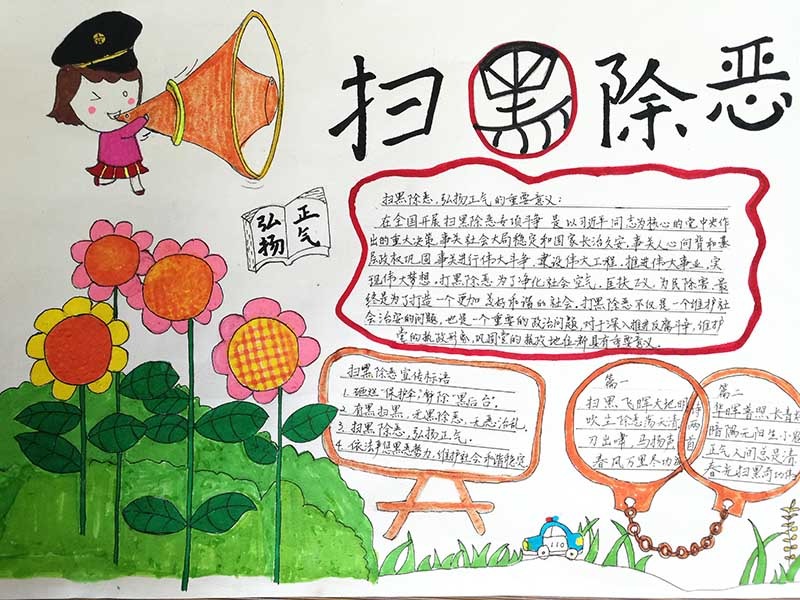 扫黑除恶
弘扬
正气
扫黑除恶，弘扬正气的重要意义：
在全国开展扫黑除恶专项斗争 是以习近平同志为核心的党中央作
出的重大决策，事关社会大局稳定和国家长治久安，事关人心向背和基
层政权巩固，事关进行伟大斗争，建设伟大工程，推进伟大事业，实
现伟大梦想，打黑除恶 为了净化社会空气，匡扶正义，为民除害，最
终是为了打造一个更加美好和谐的社会，打黑除恶不仅是一个维护社
会治安的问题，也是一个重要的政治问题，对于深入推进反腐斗争，维护
党的执政形象，巩固党的执政地位都具有重要意义。
扫黑除恶宣传标语
1. 砸烂"保护伞"，铲除"黑后台"。
2. 有黑扫黑，无黑除恶，无恶治乱。
3. 扫黑除恶，弘扬正气。
4. 依法严惩黑恶势力，维护社会和谐稳定
篇一
扫黑飞晖大地明
吹尘除恶荡天清
刀出啸，马扬声
春风万里尽功
诗两首
篇二
华晖普照长青
晴隅元阳生小
正气人间总是清
春光扫黑奇功
110